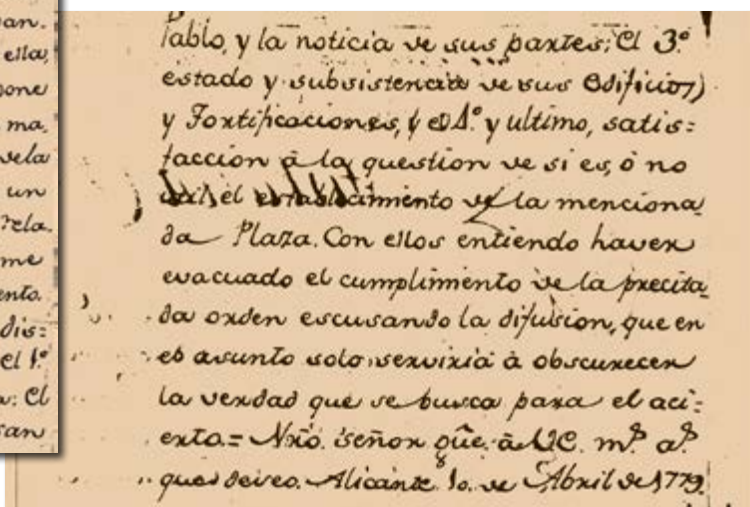 an.
ella,
pone
ma,
vela
un
rela.
me
ento.
dis=
el 1º
n: El
san
Pablo, y la noticia de sus partes; El 3º
estado y subsistencia de sus Edificios)
y Fortificaciones, y el 4º y ultimo, satis=
faccion à la question de si es, ò no
util el establecimiento de la menciona
da Plaza. Con ellos entiendo haver
evacuado el cumplimiento de la precita
da orden escusando la difusion, que en
el asunto solo serviria à obscurecer
la verdad que se busca para el aci=
erto = Nrô. Señor gûe. à VE. mº aº
que deseo. Alicante 1o. de Abril de 1779.